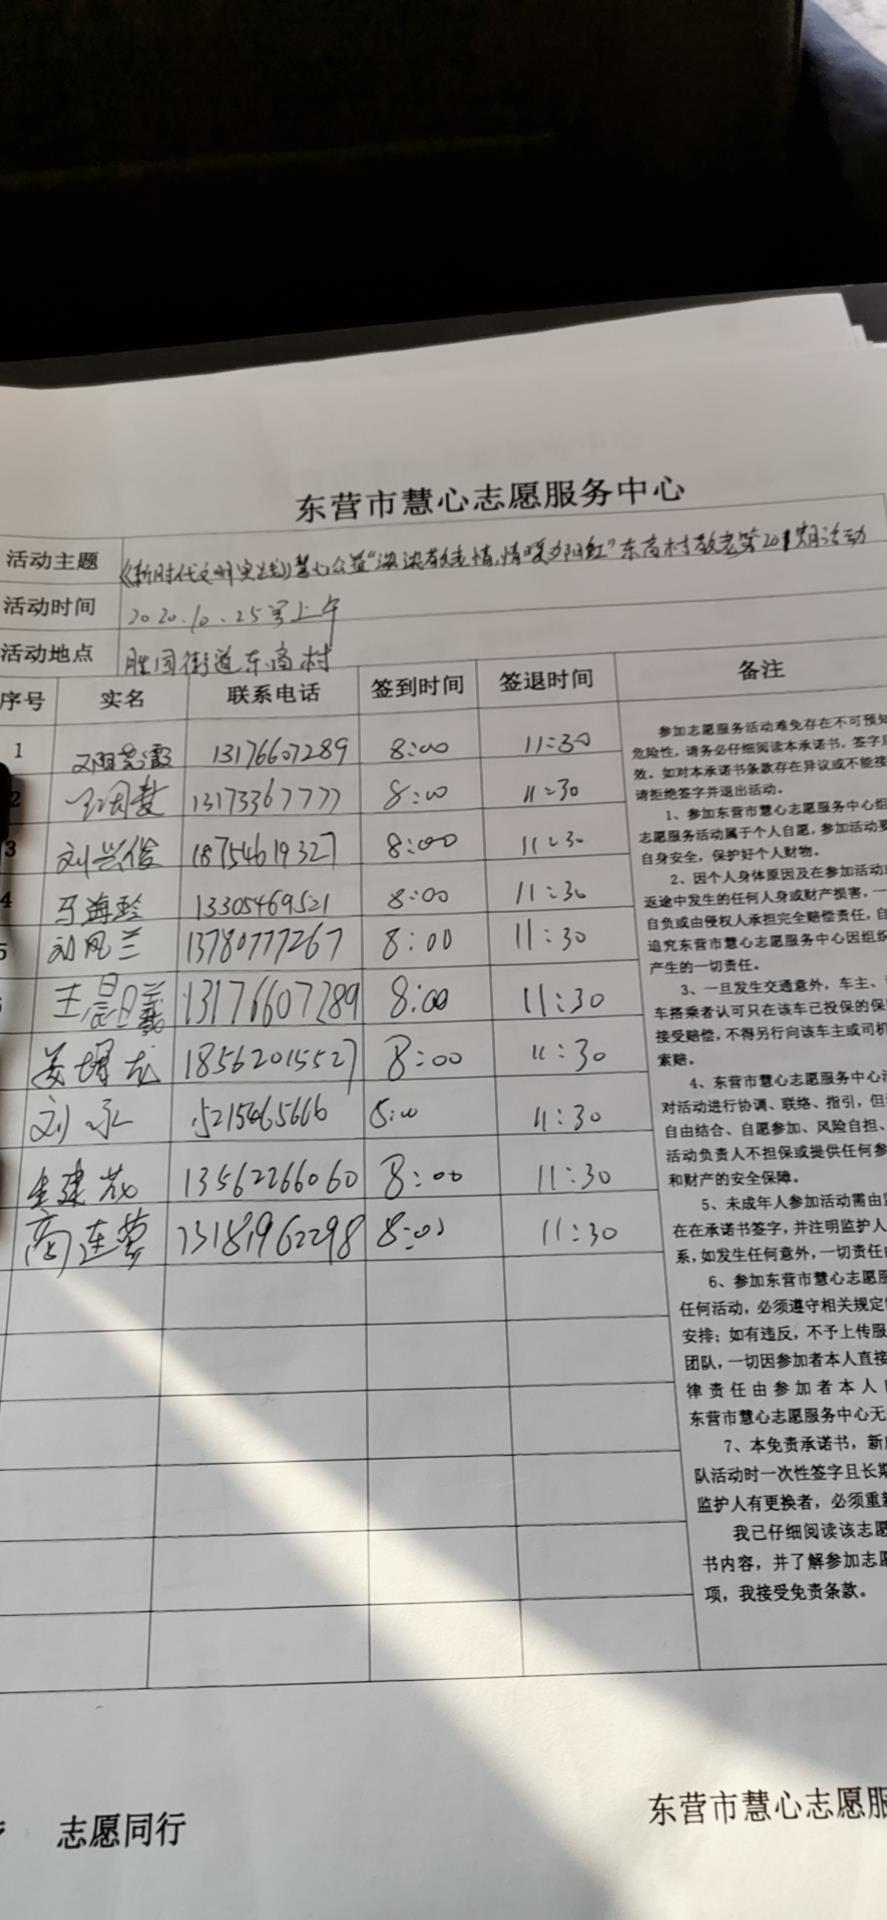 东营市慧心志愿服务中心
活动主题 《新时代文明实践》慧心公益“浓浓敬老情,情暖夕阳红”东商村敬老第201期活动
活动时间 2020.10.25号上午
活动地点 胜园街道东商村
序号 实名 联系电话 签到时间 签退时间 备注
1 13176607289 8:00 11:30
2 13173367777 8:00 11:30
3 刘兴俊 18754619327 8:00 11:30
4 马海玲 13305469521 8:00 11:30
5 刘凤兰 13780777267 8:00 11:30
王晨曦 13176607289 8:00 11:30
18562015527 8:00 11:30
刘永 15215465666 8:00 11:30
13562266060 8:00 11:30
商连荣 13181962298 8:00 11:30
参加志愿服务活动难免存在不可预知
危险性,请务必仔细阅读本承诺书,签字
效。如对本承诺书条款存在异议或不能接
请拒绝签字并退出活动。
1、参加东营市慧心志愿服务中心组
志愿服务活动属于个人自愿,参加活动要
自身安全,保护好个人财物。
2、因个人身体原因及在参加活动或
返途中发生的任何人身或财产损害,一
自负或由侵权人承担完全赔偿责任,自
追究东营市慧心志愿服务中心因组织
产生的一切责任。
3、一旦发生交通意外,车主、
车搭乘者认可只在该车已投保的保
接受赔偿,不得另行向该车主或司机
索赔。
4、东营市慧心志愿服务中心
对活动进行协调、联络、指引,但
自由结合、自愿参加、风险自担、
活动负责人不担保或提供任何参
和财产的安全保障。
5、未成年人参加活动需由
在在承诺书签字,并注明监护人
系,如发生任何意外,一切责任
6、参加东营市慧心志愿服
任何活动,必须遵守相关规定
安排;如有违反,不予上传服
团队,一切因参加者本人直接
律责任由参加者本人
东营市慧心志愿服务中心无
7、本免责承诺书,新
队活动时一次性签字且长期
监护人有更换者,必须重新
我已仔细阅读该志愿
书内容,并了解参加志愿
项,我接受免责条款。
志愿同行 东营市慧心志愿服